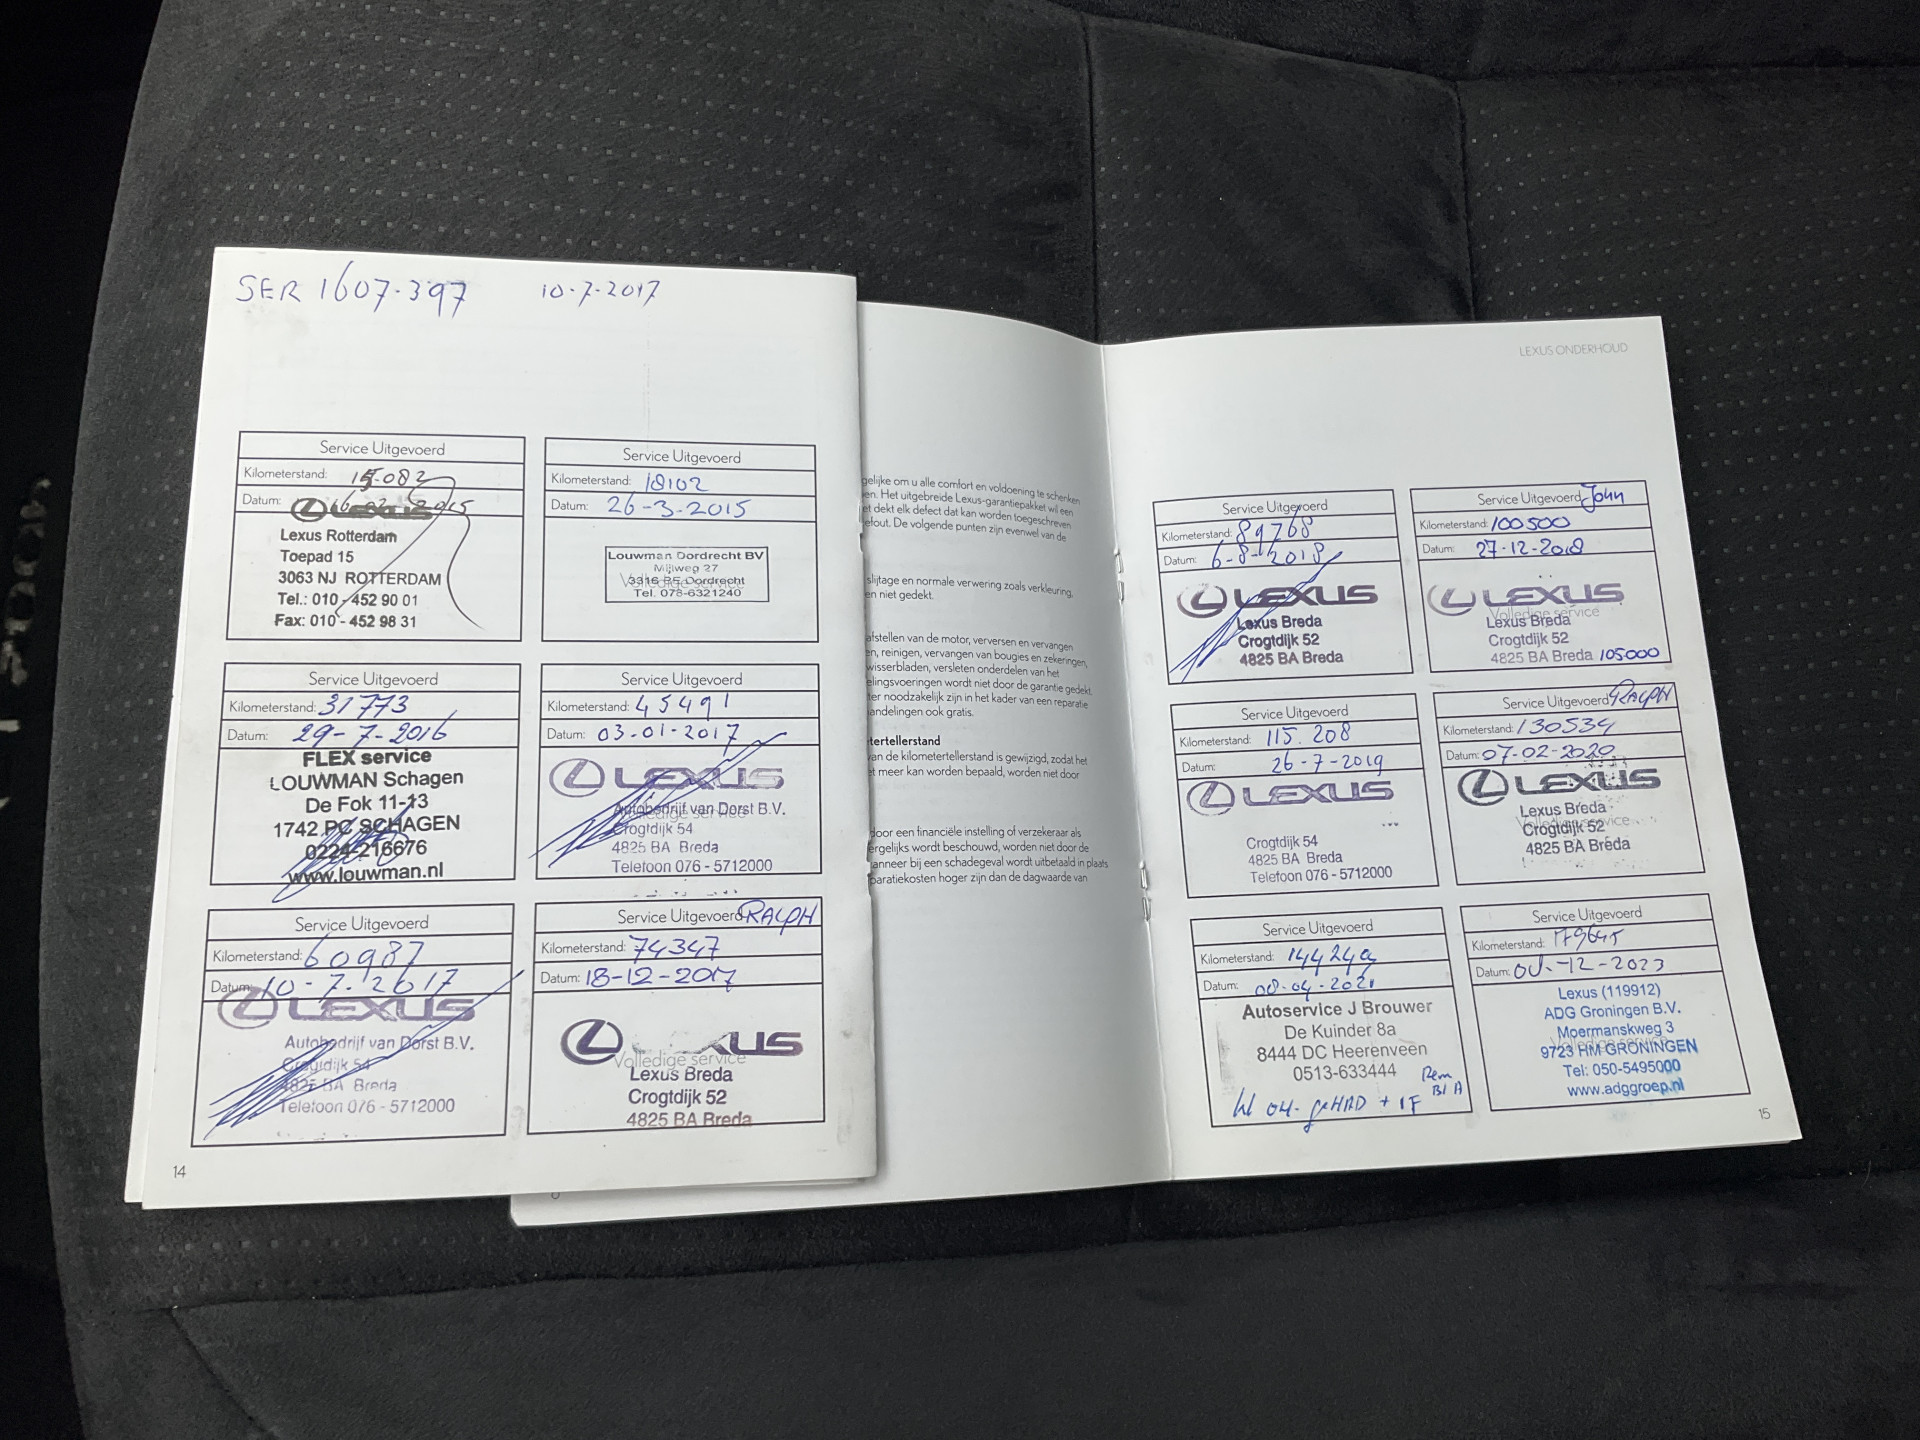 SER 1607-397 10-7-2017
Service Uitgevoerd
Kilometerstand: 15.082
Datum:
LEXUS
Lexus Rotterdam
Toepad 15
3063 NJ ROTTERDAM
Tel.: 010 - 452 90 01
Fax: 010 - 452 98 31
Service Uitgevoerd
Kilometerstand: 18102
Datum: 26-3-2015
Louwman Dordrecht BV
Mijlweg 27
3316 BE Dordrecht
Volledige service
Tel. 078-6321240
Service Uitgevoerd
Kilometerstand: 31773
Datum: 29-7-2016
FLEX service
LOUWMAN Schagen
De Fok 11-13
1742 PC SCHAGEN
0224-216676
www.louwman.nl
Service Uitgevoerd
Kilometerstand: 45491
Datum: 03-01-2017
LEXUS
Autobedrijf van Dorst B.V.
Volledige service
Crogtdijk 54
4825 BA Breda
Telefoon 076 - 5712000
Service Uitgevoerd
Kilometerstand: 60987
Datum: 10-7-2017
LEXUS
Autobedrijf van Dorst B.V.
Crogtdijk 54
4825 BA Breda
Telefoon 076 - 5712000
Service Uitgevoerd RALPH
Kilometerstand: 74347
Datum: 18-12-2017
LEXUS
Volledige service
Lexus Breda
Crogtdijk 52
4825 BA Breda
14
gelijke om u alle comfort en voldoening te schenken
en. Het uitgebreide Lexus-garantiepakket wil een
t dekt elk defect dat kan worden toegeschreven
efout. De volgende punten zijn evenwel van de
slijtage en normale verwering zoals verkleuring,
en niet gedekt.
afstellen van de motor, verversen en vervangen
en, reinigen, vervangen van bougies en zekeringen,
wisserbladen, versleten onderdelen van het
elingsvoeringen wordt niet door de garantie gedekt,
ter noodzakelijk zijn in het kader van een reparatie
andelingen ook gratis.
tertellerstand
van de kilometertellerstand is gewijzigd, zodat het
t meer kan worden bepaald, worden niet door
door een financiële instelling of verzekeraar als
ergelijks wordt beschouwd, worden niet door de
anneer bij een schadegeval wordt uitbetaald in plaats
paratiekosten hoger zijn dan de dagwaarde van
LEXUS ONDERHOUD
Service Uitgevoerd
Kilometerstand: 89768
Datum: 6-8-2018
LEXUS
Lexus Breda
Crogtdijk 52
4825 BA Breda
Service Uitgevoerd John
Kilometerstand: 100500
Datum: 27-12-2018
LEXUS
Volledige service
Lexus Breda
Crogtdijk 52
4825 BA Breda 105000
Service Uitgevoerd
Kilometerstand: 115.208
Datum: 26-7-2019
LEXUS
Crogtdijk 54
4825 BA Breda
Telefoon 076 - 5712000
Service Uitgevoerd RALPH
Kilometerstand: 130534
Datum: 07-02-2020
LEXUS
Lexus Breda
Volledige service
Crogtdijk 52
4825 BA Breda
Service Uitgevoerd
Kilometerstand:
Datum: 08-04-2021
Autoservice J Brouwer
De Kuinder 8a
8444 DC Heerenveen
0513-633444
Rem
Bl A
Service Uitgevoerd
Kilometerstand: 179645
Datum:
Lexus (119912)
ADG Groningen B.V.
Moermanskweg 3
Volledige service
9723 HM GRONINGEN
Tel: 050-5495000
www.adggroep.nl
15